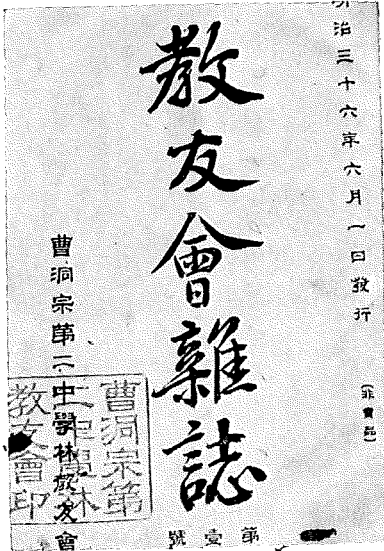 明治三十六年六月一日發行
(非賣品)
教友會雜誌
曹洞宗第二中學林教友會
第壹號
曹洞宗第
二中學林
教友會印